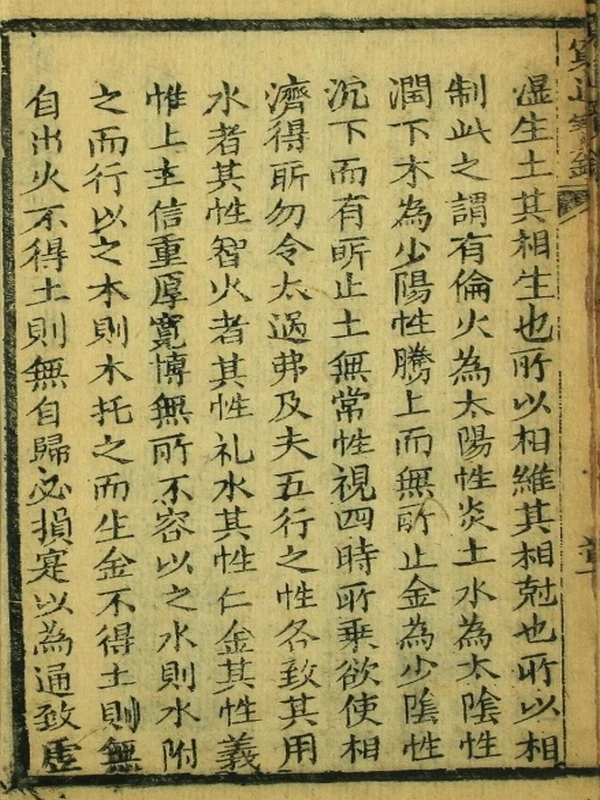 湿生土其相生也所以相維其相尅也所以相
制此之謂有倫火為太陽性炎土水為太陰性
潤下木為少陽性騰上而無所止金為少陰性
沉下而有所止土無常性視四時所乗欲使相
濟得所勿令太過弗及夫五行之性各致其用
水者其性智火者其性礼水其性仁金其性義
惟上主信重厚寛博無所不容以之水則水附
之而行以之木則木托之而生金不得土則無
自出火不得土則無自歸必損寔以為通致虛